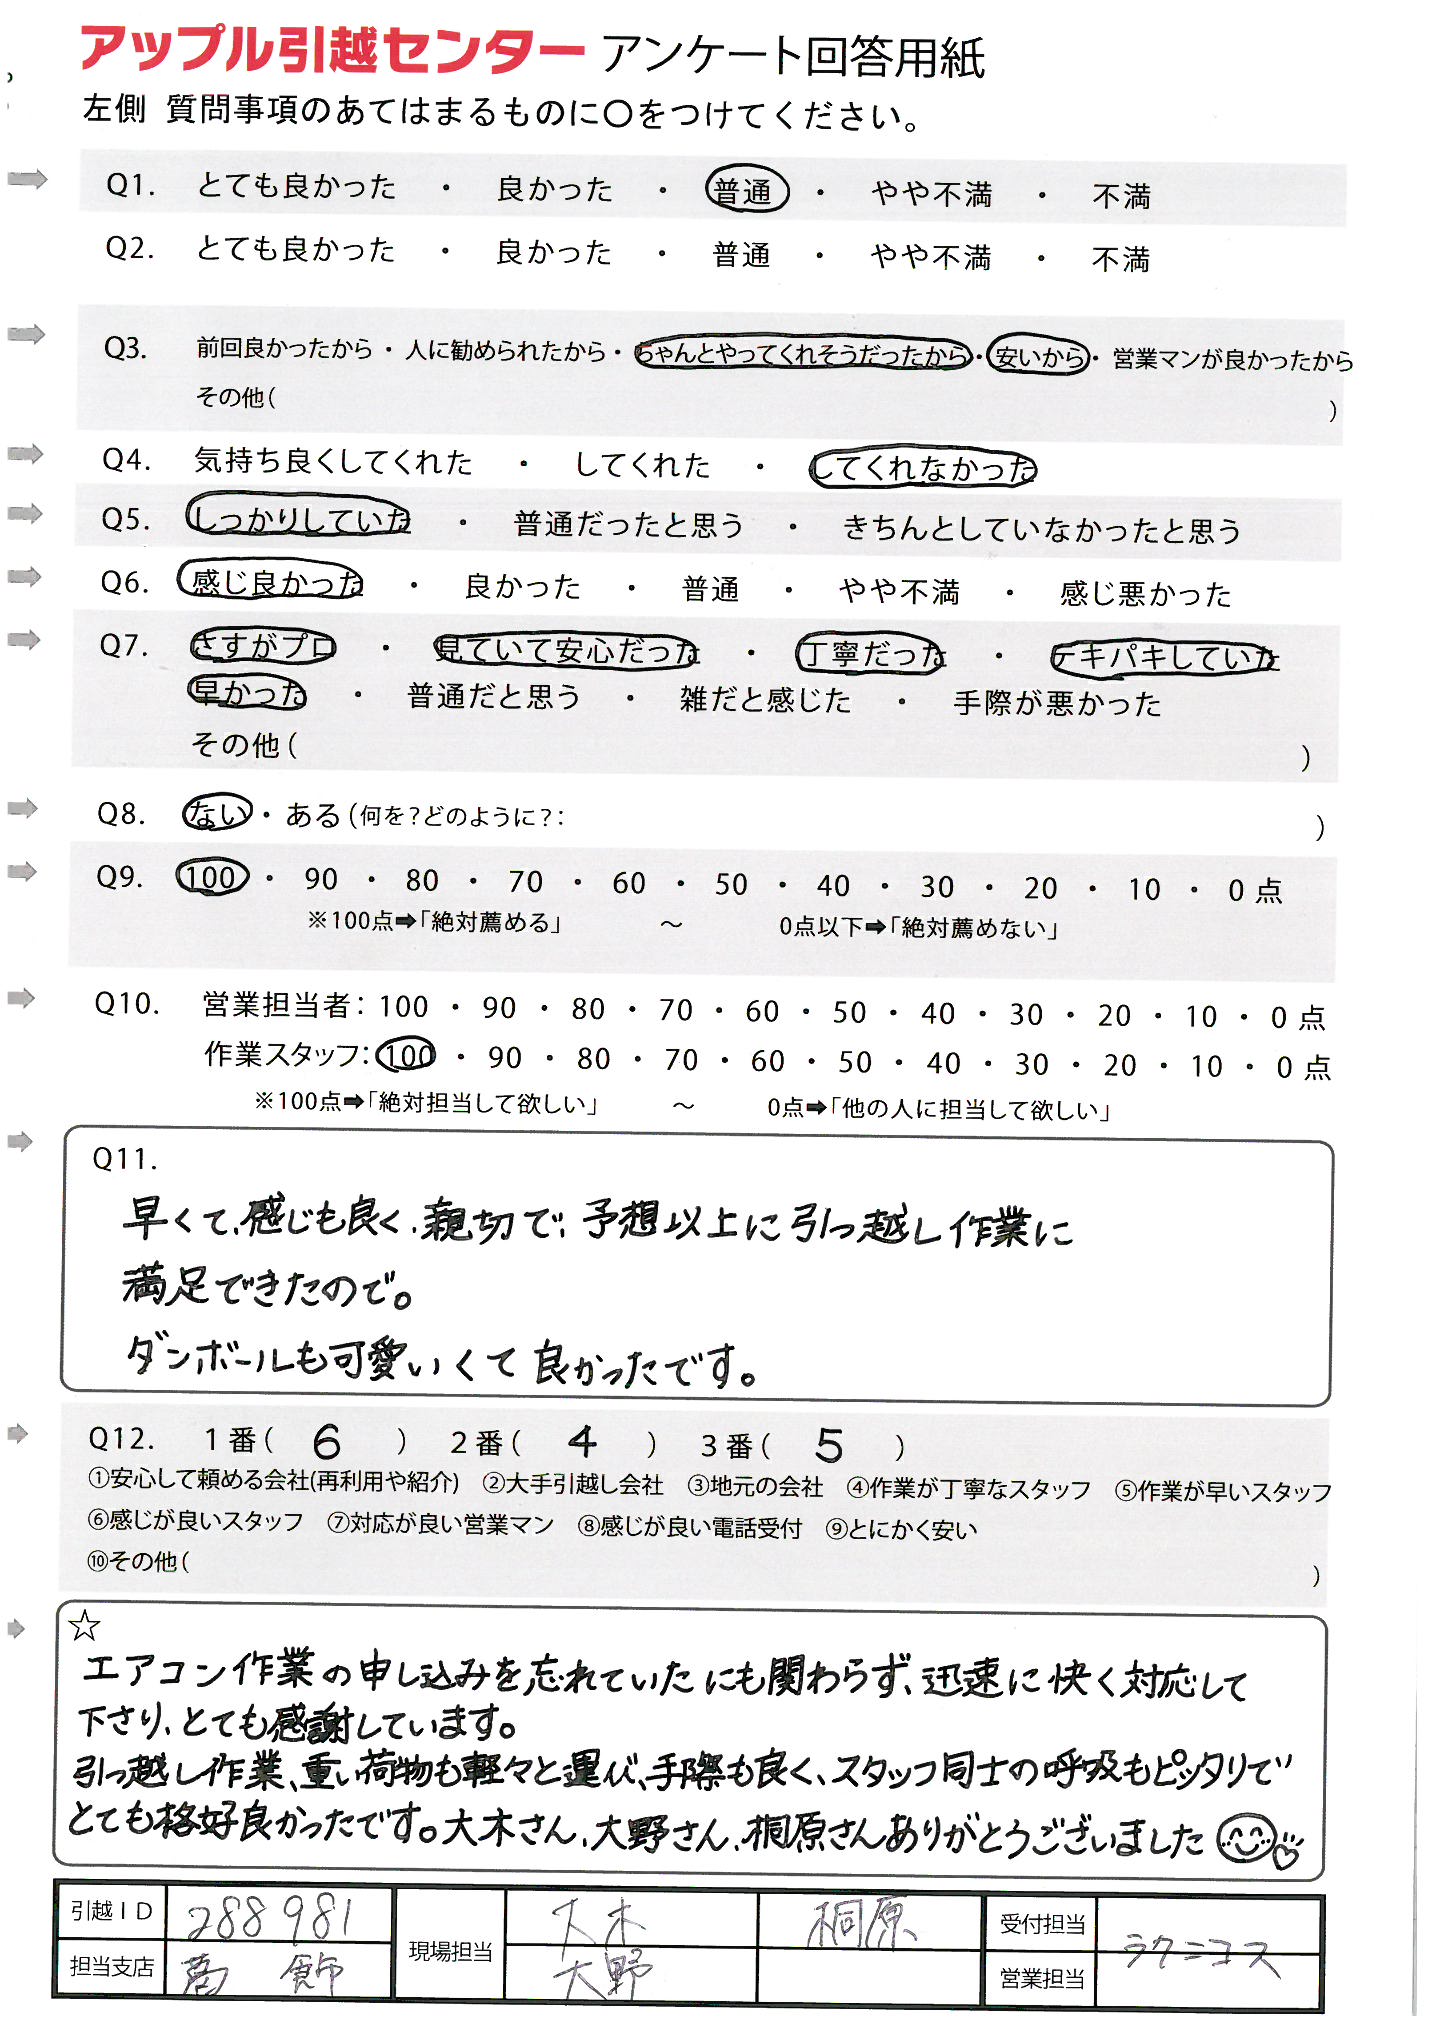 アップル引越センター アンケート回答用紙
左側 質問事項のあてはまるものに○をつけてください。
Q1. とても良かった ・ 良かった ・ 普通 ・ やや不満 ・ 不満
Q2. とても良かった ・ 良かった ・ 普通 ・ やや不満 ・ 不満
Q3. 前回良かったから・人に勧められたから・ちゃんとやってくれそうだったから・安いから・営業マンが良かったから
その他( )
Q4. 気持ち良くしてくれた ・ してくれた ・ してくれなかった
Q5. しっかりしていた ・ 普通だったと思う ・ きちんとしていなかったと思う
Q6. 感じ良かった ・ 良かった ・ 普通 ・ やや不満 ・ 感じ悪かった
Q7. さすがプロ ・ 見ていて安心だった ・ 丁寧だった ・ テキパキしていた
早かった ・ 普通だと思う ・ 雑だと感じた ・ 手際が悪かった
その他( )
Q8. ない・ある(何を?どのように?: )
Q9. 100 ・ 90 ・ 80 ・ 70 ・ 60 ・ 50 ・ 40 ・ 30 ・ 20 ・ 10 ・ 0点
※100点➡「絶対薦める」 ～ 0点以下➡「絶対薦めない」
Q10. 営業担当者: 100 ・ 90 ・ 80 ・ 70 ・ 60 ・ 50 ・ 40 ・ 30 ・ 20 ・ 10 ・ 0点
作業スタッフ: 100 ・ 90 ・ 80 ・ 70 ・ 60 ・ 50 ・ 40 ・ 30 ・ 20 ・ 10 ・ 0点
※100点➡「絶対担当して欲しい」 ～ 0点➡「他の人に担当して欲しい」
Q11.
早くて、感じも良く、親切で、予想以上に引っ越し作業に
満足できたので。
ダンボールも可愛いくて良かったです。
Q12. 1番( 6 ) 2番( 4 ) 3番( 5 )
①安心して頼める会社(再利用や紹介) ②大手引越し会社 ③地元の会社 ④作業が丁寧なスタッフ ⑤作業が早いスタッフ
⑥感じが良いスタッフ ⑦対応が良い営業マン ⑧感じが良い電話受付 ⑨とにかく安い
⑩その他( )
☆
エアコン作業の申し込みを忘れていたにも関わらず、迅速に快く対応して
下さり、とても感謝しています。
引っ越し作業、重い荷物も軽々と運び、手際も良く、スタッフ同士の呼吸もピッタリで
とても格好良かったです。大木さん、大野さん、桐原さんありがとうございました
引越ID 288981 現場担当 大木 桐原 受付担当 ラクニコス
担当支店 葛飾 大野 営業担当